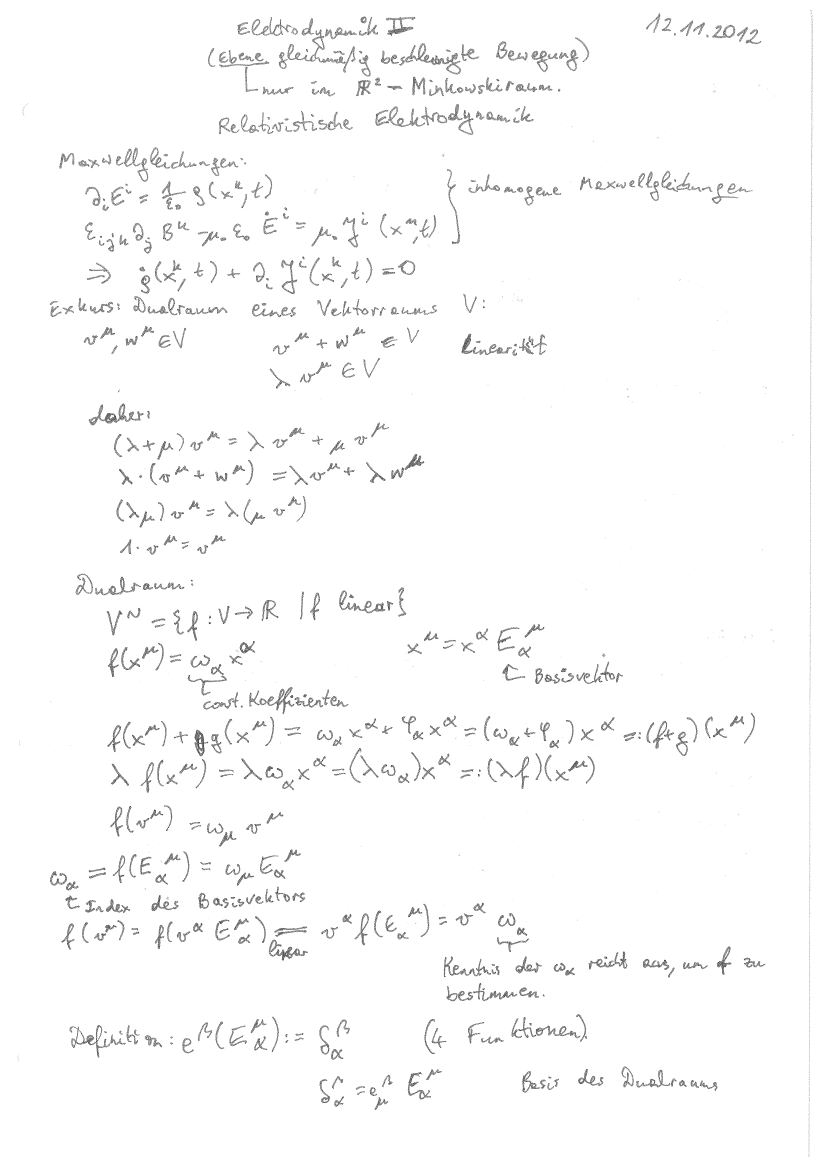 Elektrodynamik II 12.11.2012
(Ebene gleichmäßig beschleunigte Bewegung)
nur im ℝ² - Minkowskiraum.
Relativistische Elektrodynamik
Maxwellgleichungen:
∂ᵢEⁱ = 1/ε₀ ρ(xᵏ,t)
εᵢⱼₖ ∂ⱼ Bᵏ - μ₀ ε₀ Ėⁱ = μ₀ 𝒥ⁱ (xᵐ,t) } inhomogene Maxwellgleichungen
⇒ ρ̇(xᵏ,t) + ∂ᵢ 𝒥ⁱ(xᵏ,t) = 0
Exkurs: Dualraum eines Vektorraums V:
v^μ, w^μ ∈ V v^μ + w^μ ∈ V Linearität
λ v^μ ∈ V
daher:
(λ+μ) v^μ = λ v^μ + μ v^μ
λ·(v^μ + w^μ) = λv^μ + λw^μ
(λμ) v^μ = λ(μ v^μ)
1·v^μ = v^μ
Dualraum:
V^~ = {f : V → ℝ | f linear}
f(x^μ) = ω_α x^α x^μ = x^α E_α^μ
Basisvektor
const. Koeffizienten
f(x^μ) + g(x^μ) = ω_α x^α + φ_α x^α = (ω_α + φ_α) x^α =: (f+g)(x^μ)
λ f(x^μ) = λω_α x^α = (λω_α)x^α =: (λf)(x^μ)
f(v^μ) = ω_μ v^μ
ω_α = f(E_α^μ) = ω_μ E_α^μ
Index des Basisvektors
f(v^μ) = f(v^α E_α^μ) = v^α f(E_α^μ) = v^α ω_α
linear
Kenntnis der ω_α reicht aus, um f zu
bestimmen.
Definition: e^β(E_α^μ) := δ_α^β (4 Funktionen).
δ_α^β = e_μ^β E_α^μ Basis des Dualraums